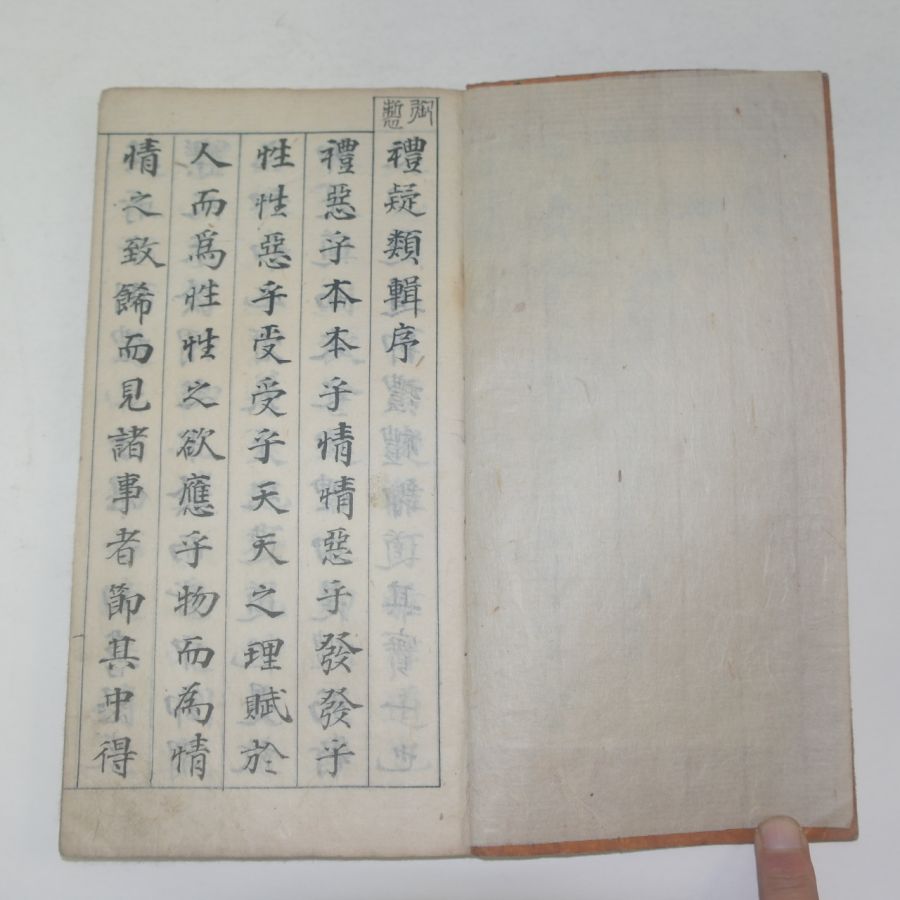 禮疑類輯序
禮惡乎本本乎情情惡乎發發乎
性性惡乎受受乎天天之理賦於
人而爲性性之欲應乎物而為情
情之致餙而見諸事者節其中得